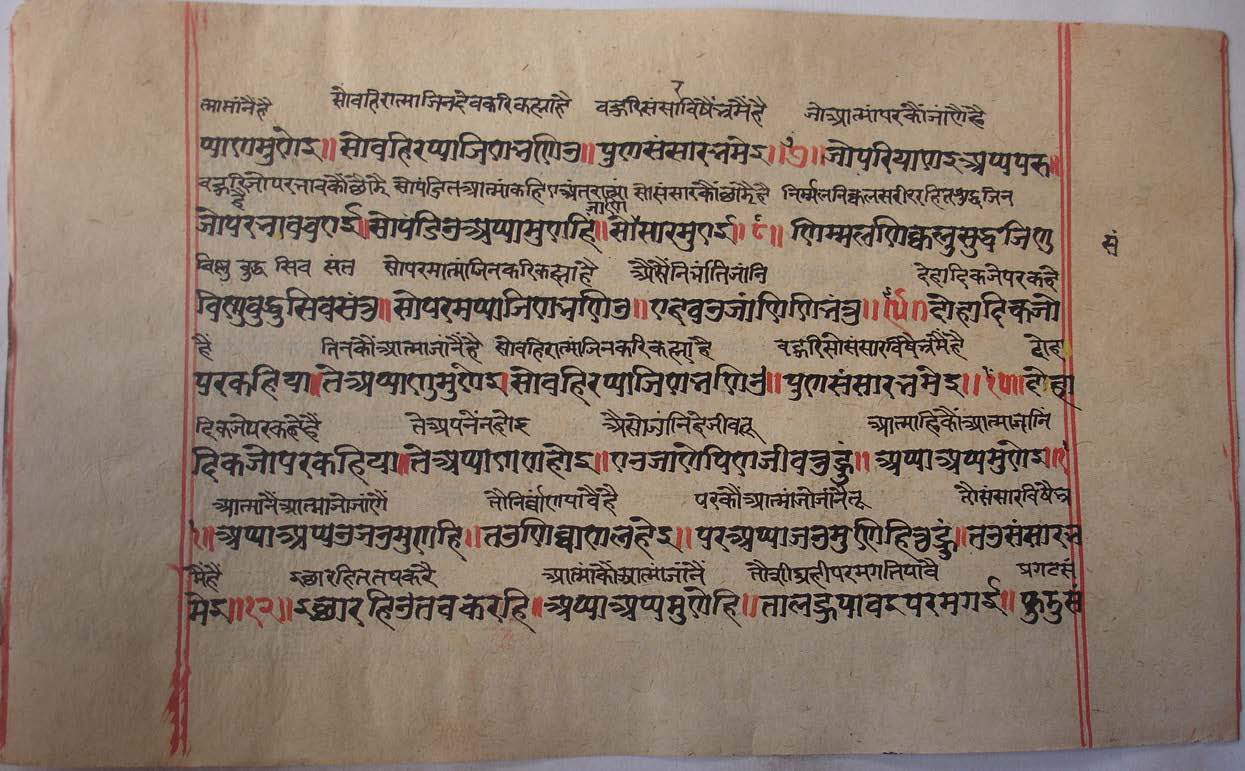 त्मामांनैहै सोवहिरात्माजिनदेवकरिकह्याहै वहुरिसंसारविषैंभ्रमैंहै जोआत्मांपरकौंजांणैंहै
प्पाणमुणेइ॥ सोवहिरप्पाजिणभणिउ॥ पुणसंसारभमेइ॥७॥ जोपरियाणइअप्पपरु॥
वहुरिजोपरभावकौंछोडै सोपंडितआत्मांकहिएअंतरात्मां सोसंसारकौंछोडैहै निर्म्मलनिक्कलसरीररहितशुद्धजिन
जाणो
जोपरभावचएई॥ सोपंडिउअप्पामुणहिं॥ सोसंसारमुएई॥८॥ णिम्मलणिक्कलुसुद्धजिणु
सं
विष्णु बुद्ध सिव संत सोपरमात्मांजिनकरिकह्याहै अैसैंनिर्भ्रांतिजांनि देहादिकजेपरकहे
विण्णुबुद्धुसिवसंतु॥ सोपरमप्पाजिणभणिउ॥ एहउजांणिणिभंतु॥९॥ देहादिकजो
हैं तिनकौंआत्माजांनैंहै सोवहिरात्मांजिनकरिकह्याहै वहुरिसोसंसारविषैभ्रमैंहै देहा
परकहिया॥ तेअप्पाणुमुणेइ सोवहिरप्पाजिणभणिउ॥ पुणसंसारभमेइ॥१०॥ देहा
दिकजेपरकहेहैं तेअपनैंनहोइ अैसोजांनिहेजीवतू आत्माहिकौंआत्माजांनि
दिकजोपरकहिया॥ तेअप्पाणणहोइ॥ एउजाणेपिणजीवतुहुं॥ अप्पाअप्पमुणेइ॥१
आत्मानैंआत्माजोजांणैं तौनिर्व्वाणपावैंहै परकौंआत्मांजोजांनैंतू तौसंसारविषैभ्र
१॥ अप्पाअप्पउजउमुणहि॥ तउणिव्वाणलहेइ॥ परअप्पाजउमुणिहितुहुं॥ तउसंसारभ
मैंहैं इच्छारहिततपकरै आत्मांकौंआत्माजांनैं तौशीघ्रहीपरमगतिपावै प्रगटसं
मेइ॥१२॥ इच्छारहिउतवकरहि॥ अप्पाअप्पमुणेहि॥ तालहुपावइपरमगई॥ फुडुसं